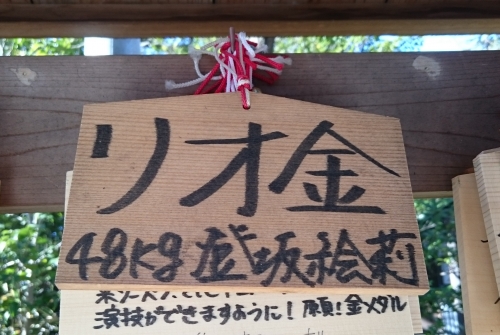 リオ金
48kg 登坂絵莉
演技ができますように！願！金メダル